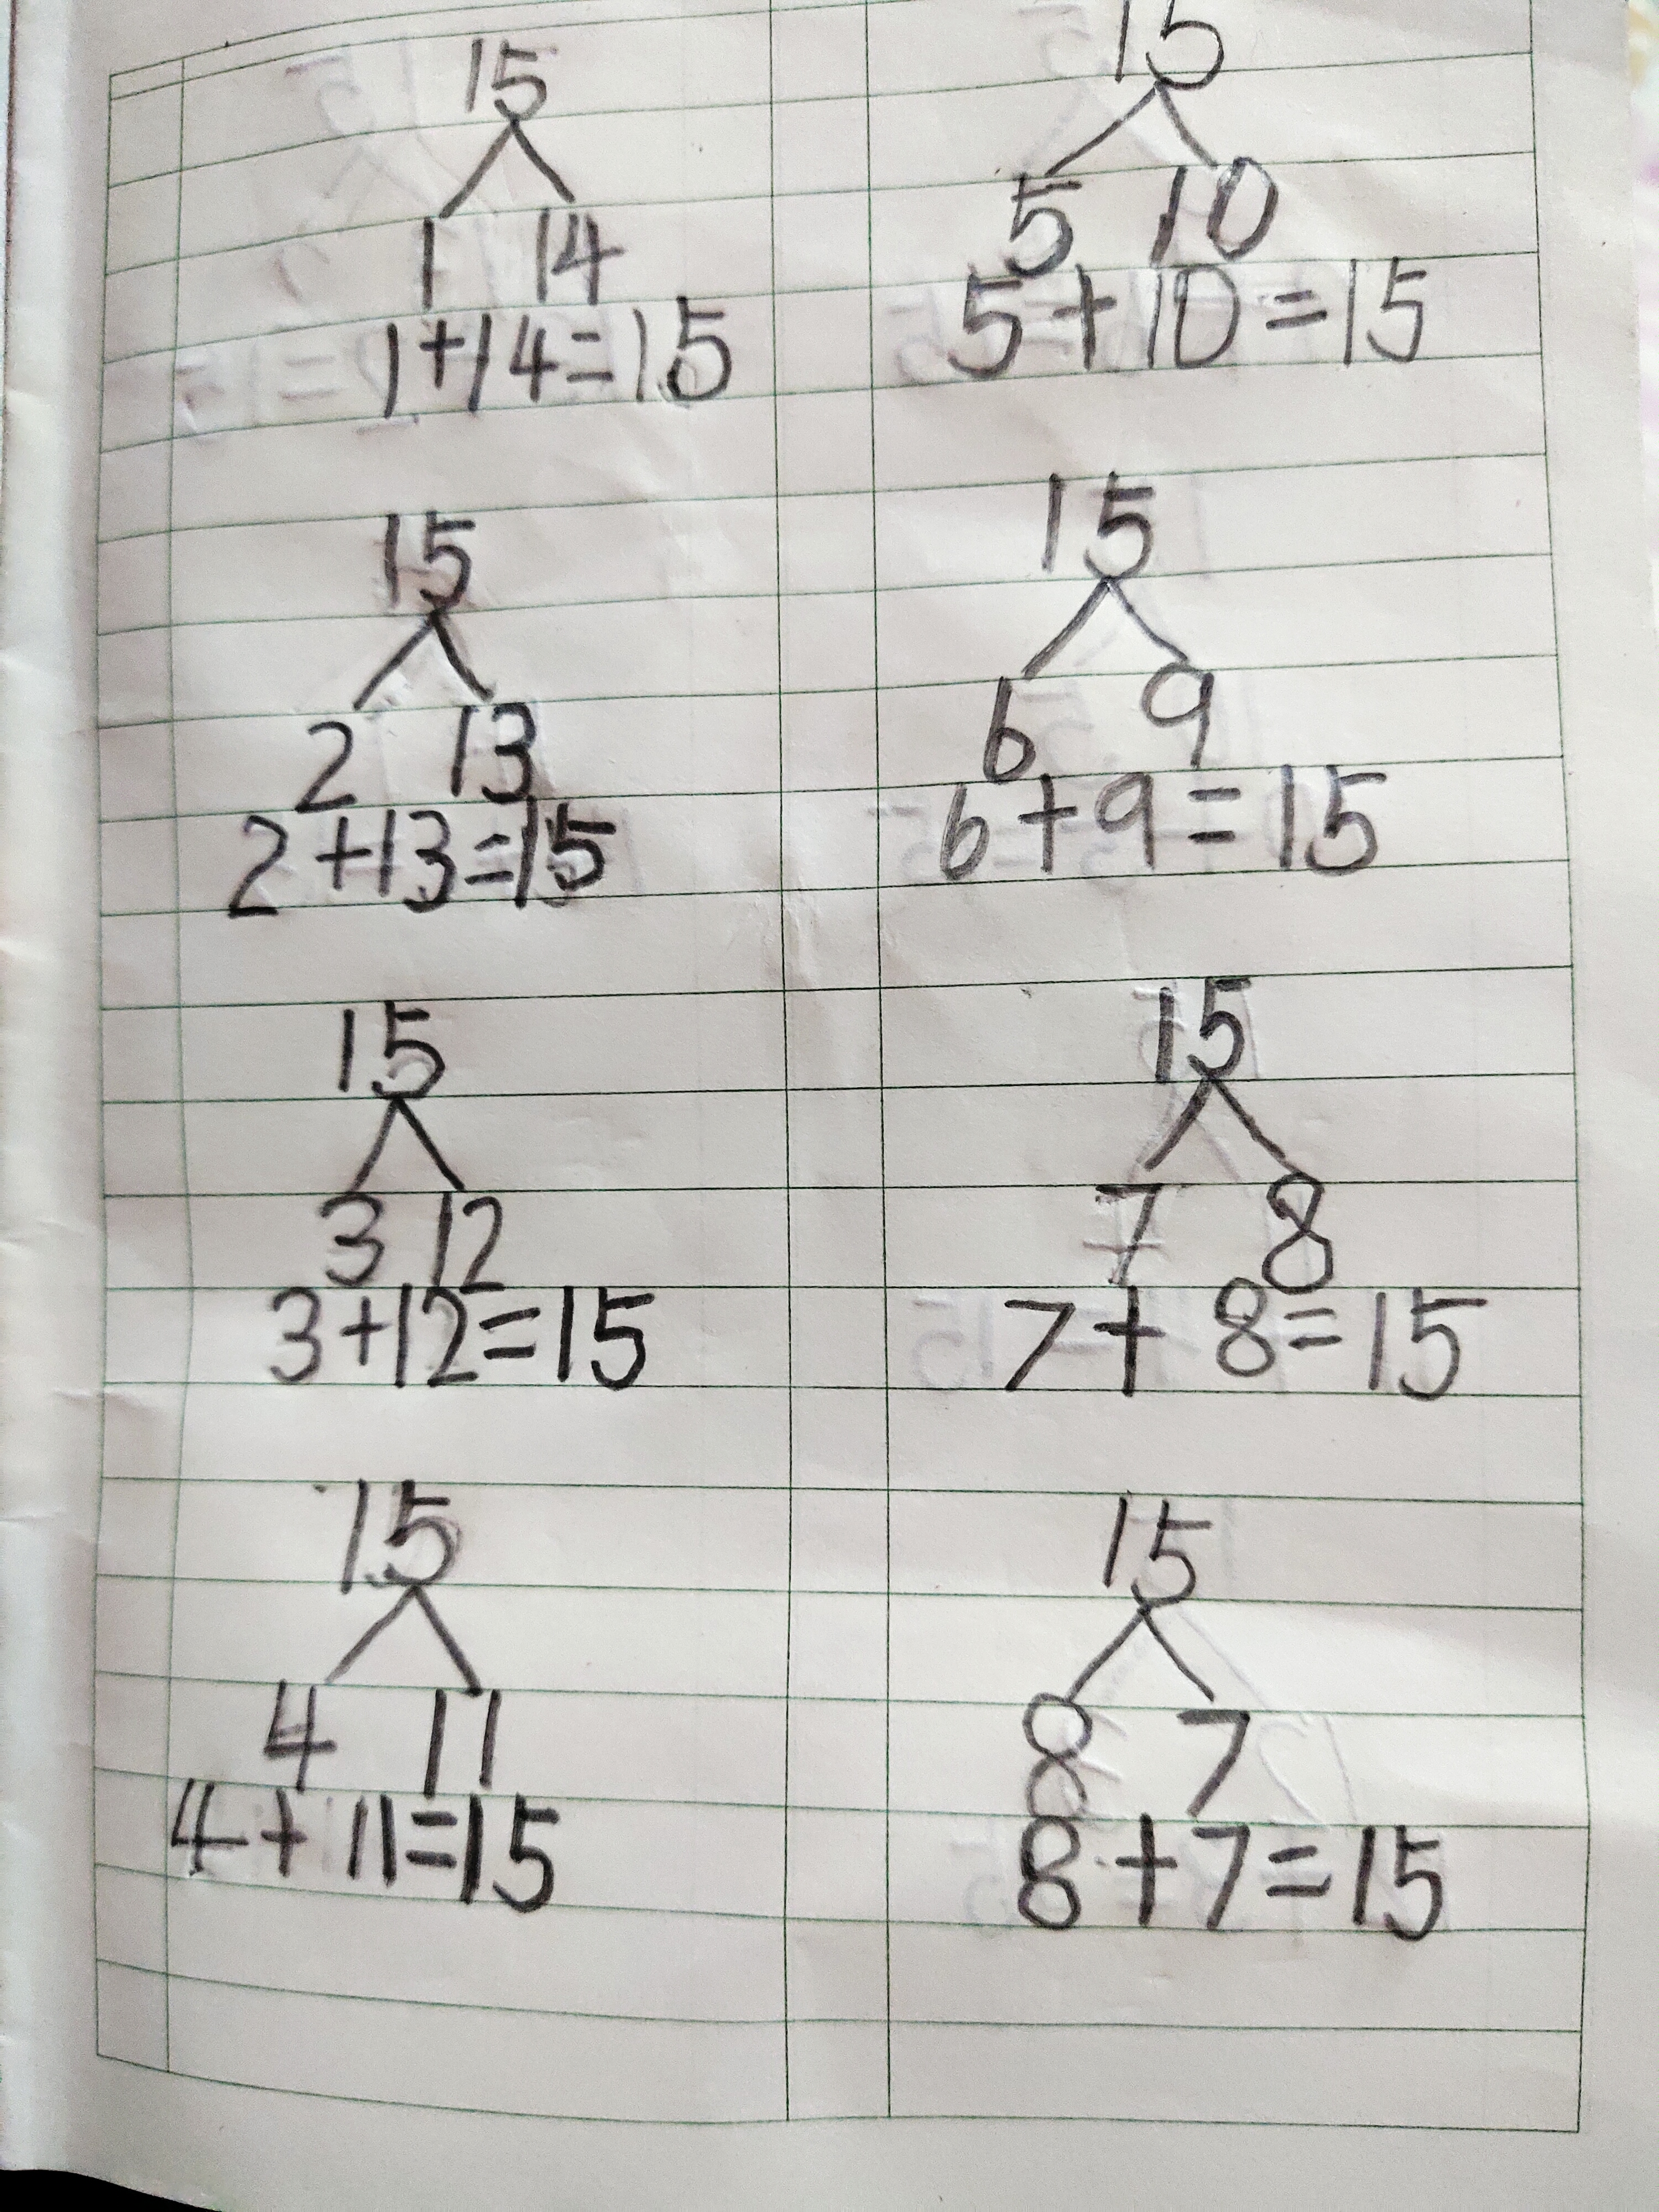 15
1 14
1+14=15
15
2 13
2+13=15
15
3 12
3+12=15
15
4 11
4+11=15
15
5 10
5+10=15
15
6 9
6+9=15
15
7 8
7+8=15
15
8 7
8+7=15